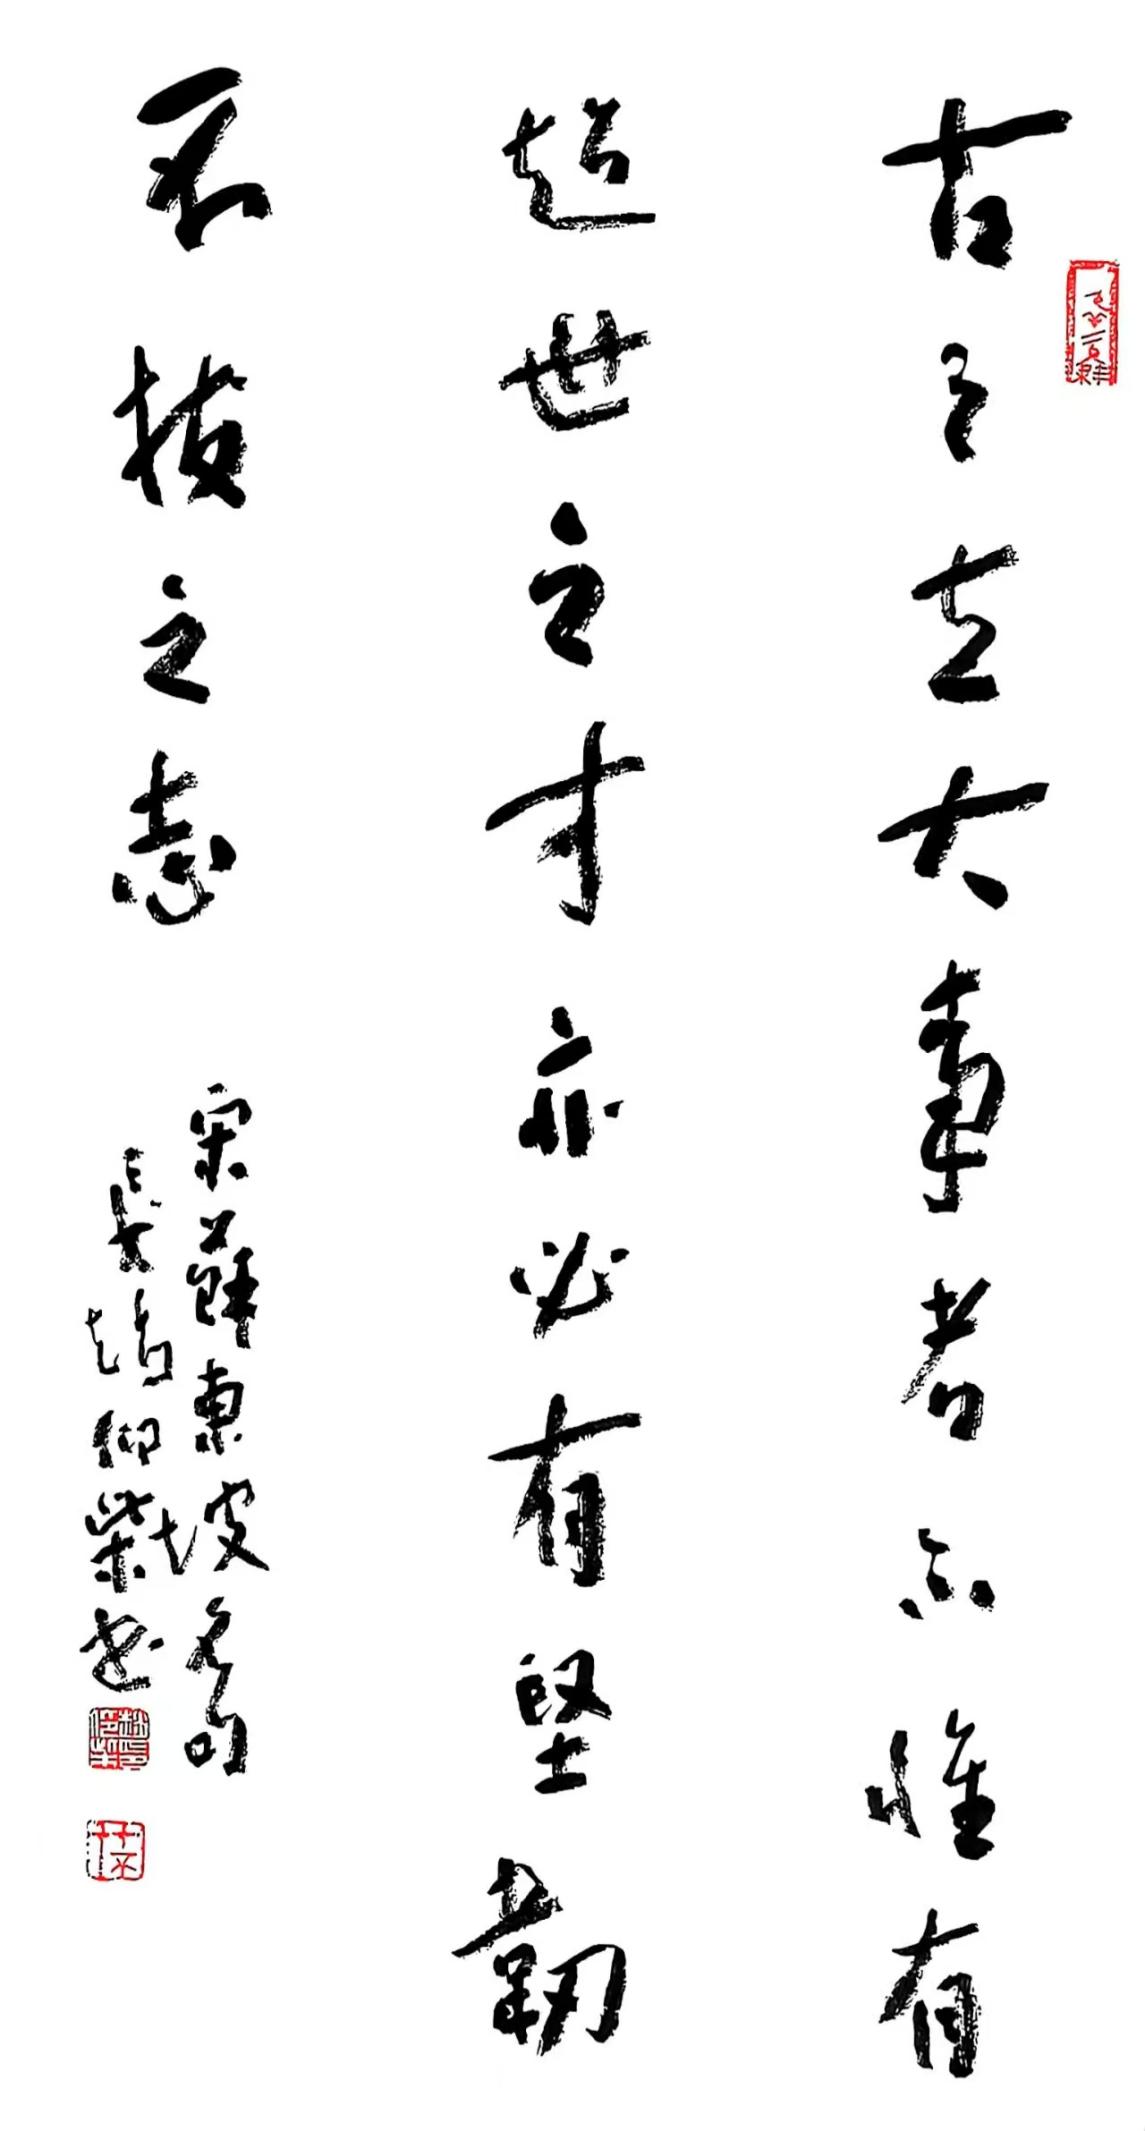 古之立大事者不惟有
超世之才亦必有堅韌
不拔之志
宋蘇東坡名句
長站仰柴书